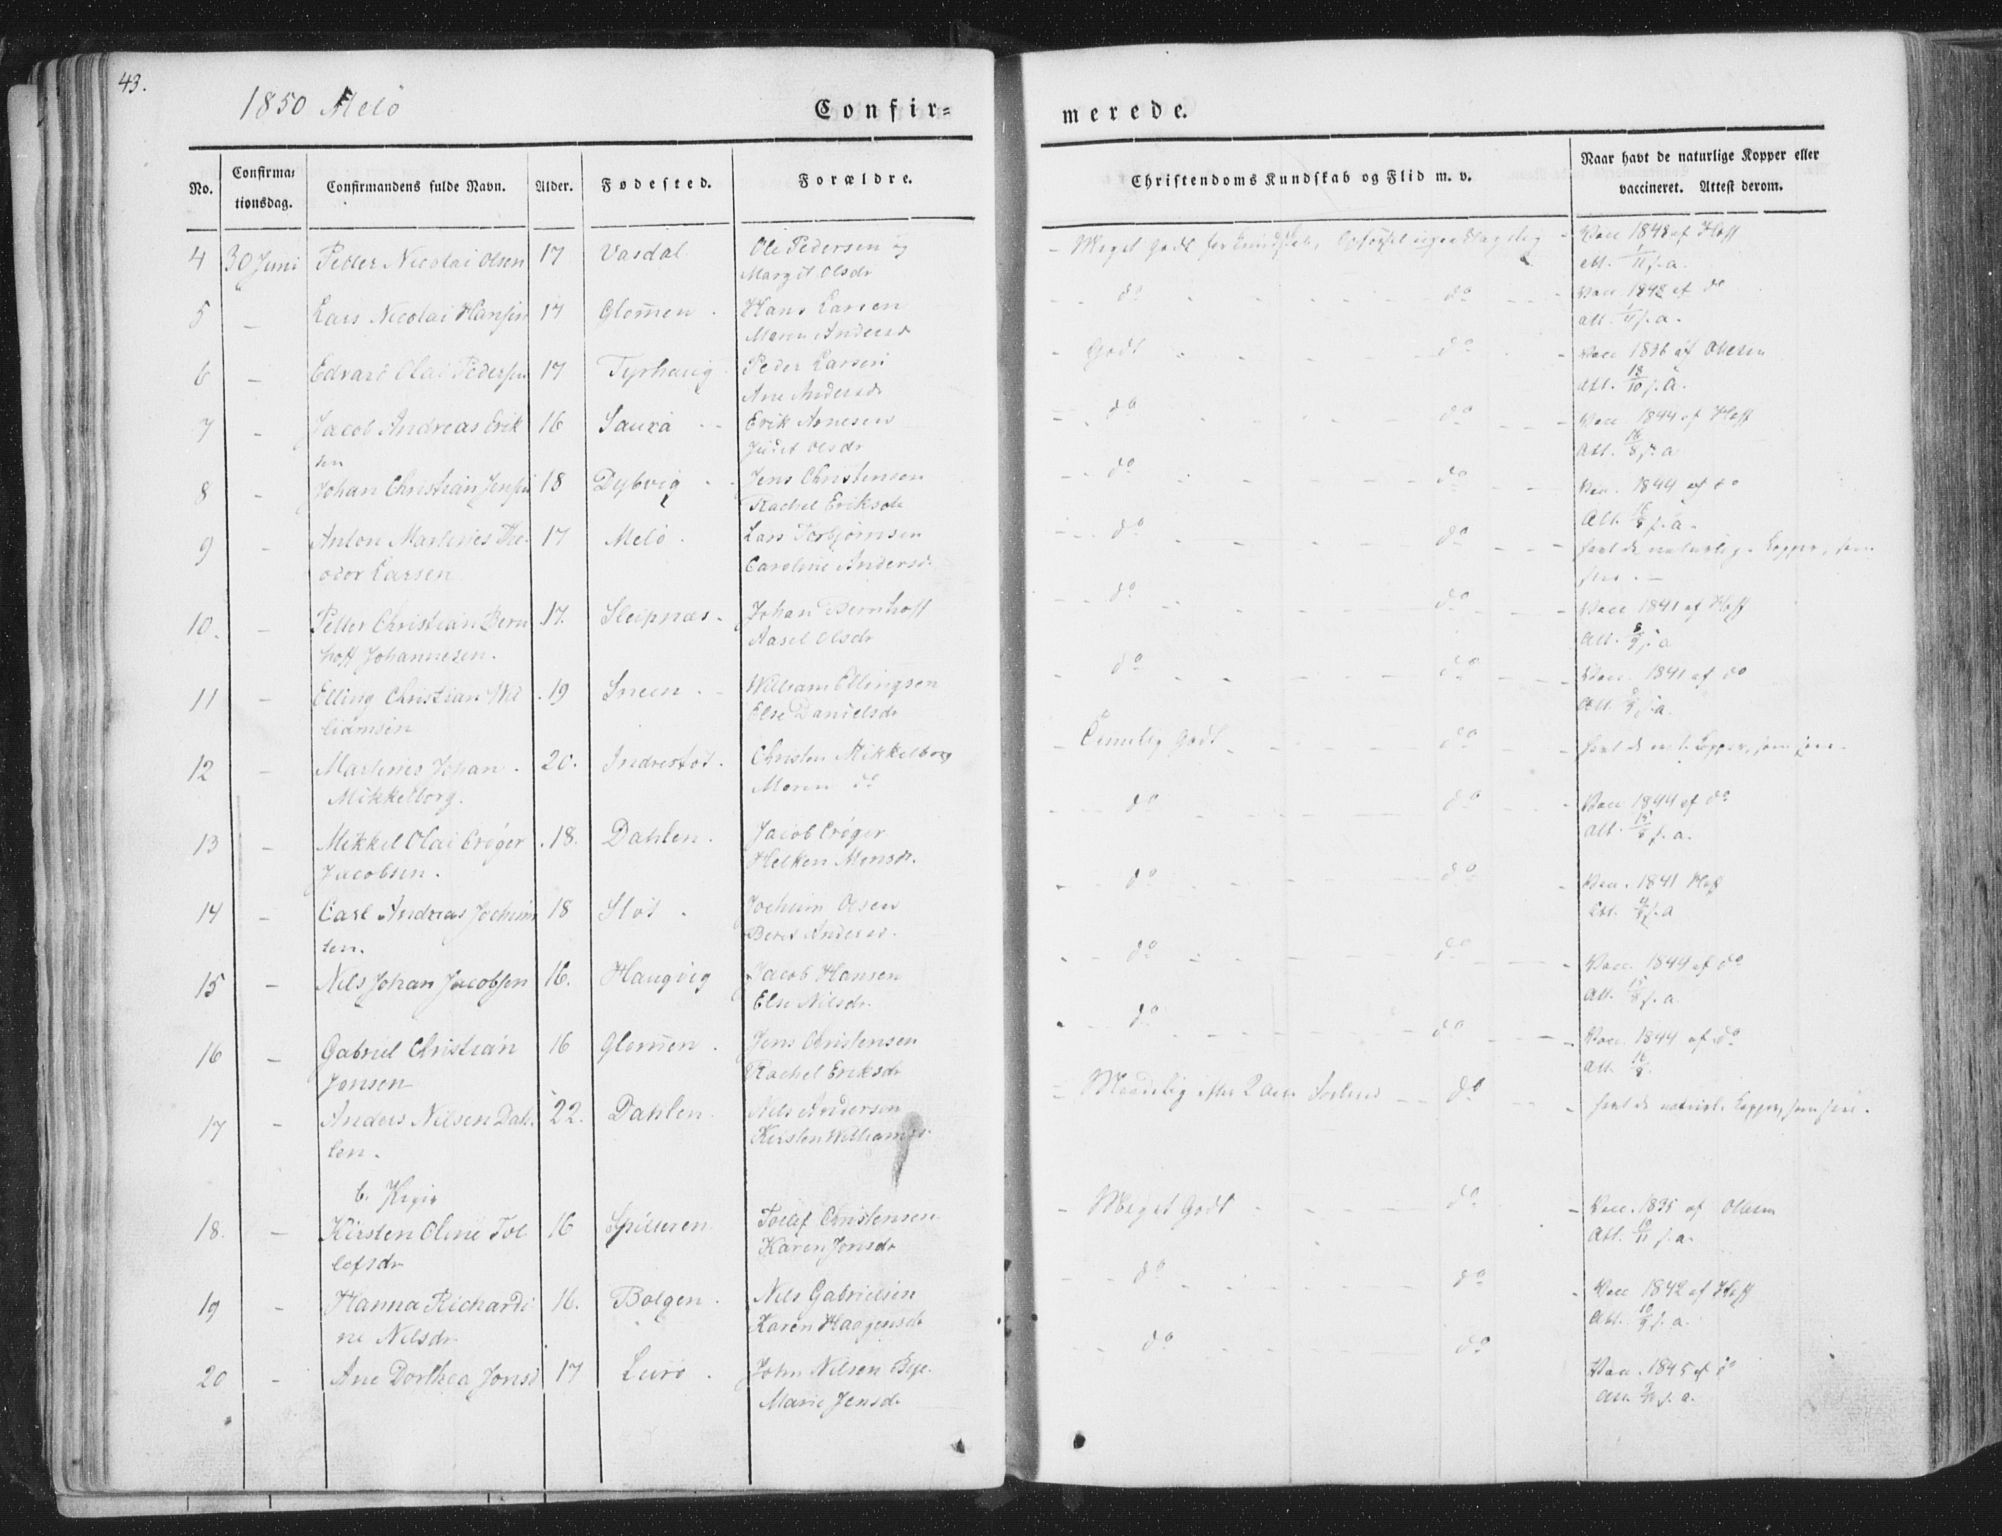 43.
1850 Melö
Confir=
merede.
No.
Confirma=
tionsdag.
Confirmandens fulde Navn.
Alder.
Fødested.
Forældre.
Christendoms Kundskab og Flid m. v.
Naar havt de naturlige Kopper eller
vaccineret. Attest derom.
4 30 Juni Petter Nicolai Olsen 17 Vasdal Ole Pedersen og - Meget Godt - Vacc 1848 af Hoff
Margit Olsdr att. 1/11 s. a.
5 - Lars Nicolai Hansen 17 Glomen. Hans Larsen - - do - - do - - Vacc 1848 af do
Maren Andersd att. 1/11 s. a.
6 - Edvard Olai Pedersen 17 Tyrhaug Peder Larsen - Godt - do - Vacc 1836 af Olsen
Ane Andersdr att. 18/10 s. a.
7 - Jacob Andreas Erik 16 Saura - - Erik Arnesen - do - do - - Vacc 1844 af Hoff
sen Judit Olsdr att. 16/8 s. a
8 - Johan Christian Jensen 18 Dybvig - - Jens Christensen - - do - do - - Vacc. 1844 af do
Rachel Eriksdr Att. 16/8 s. a.
9 - Anton Martines The- 17 Melö. Lars Torbjörnsen - - do - do - - havt de naturlige Kopper, sees
odor Larsen Caroline Andersd.
10. - Petter Christian Bern 17. Sleipnæs. Johan Bernhoff - do - do - Vacc 1841 af Hoff
hoff Johannesen. Aasel Olsdr att. 8/9 s. a
11 - Elling Christian Wil 19 Sneen. - William Ellingsen - do - do - - Vacc. 1841 af do
liamsen Else Danielsdr att. s. a.
12 - Martines Johan. 20. Indrestöt. Christen Mikkelborg - Temmelig Godt - do - - havt de nat. Kopper,
Mikkelborg. Maren do
13 - Mikkel Olai Cröger 18. Dahlen. Jacob Cröger - - do - do - - Vacc 1844 af do
Jacobsen. Helken Monsdr. att. 15/8 s. a.
14 - Carl Andreas Jochim 18 Stöt. Jochim Olsen - do - do - Vacc. 1841 Hoff
sen. Beret Andersd. att. s. a
15 - Nels Johan Jacobsen 16. Haugvig Jacob Hansen - do - do - - Vacc. 1844 af do
Else Nilsdr. att. 15/8 s. a
16 - Gabriel Christian 16 Glomen. Jens Christensen - do - do - - Vacc. 1844 af do
Jensen Rachel Eriksdr att. 16/8.
17 - Anders Nilsen Dah- 22. Dahlen. Nils Andersen - Maadelig - - do - havt de naturl. Kopper,
len. Kirsten Williamsd.
b. Piger
18. - Kirsten Oline Tol 16 Spilderen Tolaf Christensen - Meget Godt - do - Vacc. 1835 af Olsen
lefsdr Karen Jonsdr att. s. a.
19 - Hanna Richardi 16. Bolgen. Nils Gabrielsen - - do - do - Vacc 1842 af Hoff
ne Nilsdr Karen Haagensdr att. 10/9 s. a.
20 - Ane Dorthea Jonsd 17 Lurö. John Nilsen - - do - do Vacc. 1845 af do
Marie Jensd. att. s. a.